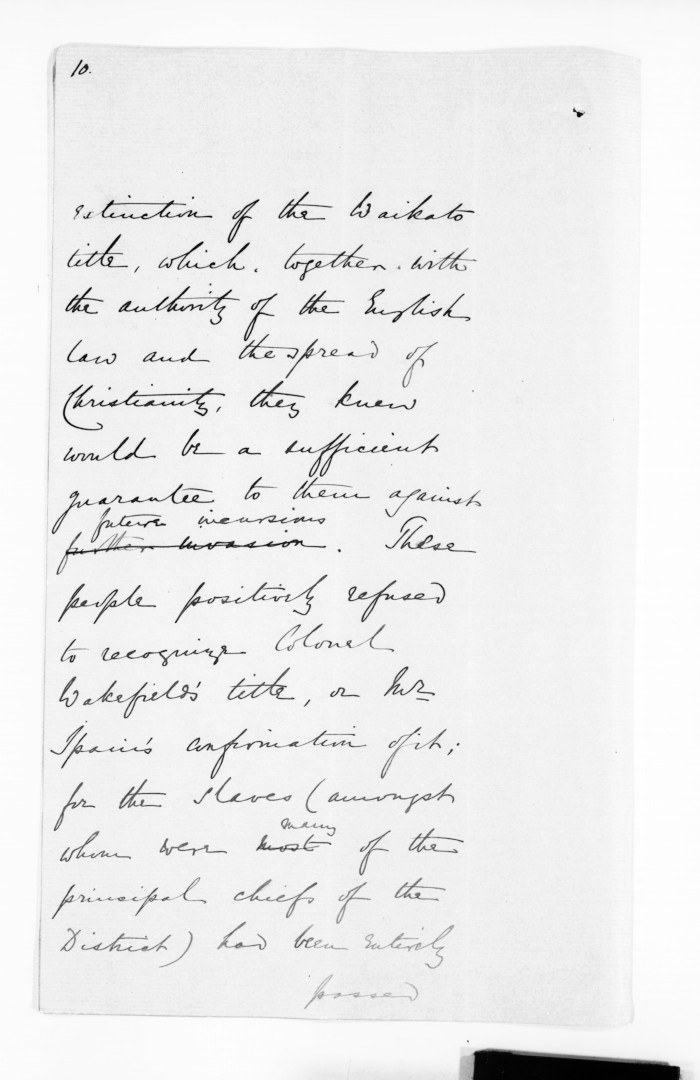 10.
extinction of the Waikato
title, which, together with
the authority of the English
law and the spread of
Christianity, they knew
would be a sufficient
guarantee to them against
future incursions
further invasion. These
people positively refused
to recognize Colonel
Wakefield's title, or Mr
Spain's confirmation of it;
for the slaves (amongst
many
whom were most of the
principal chiefs of the
District) had been entirely
passed